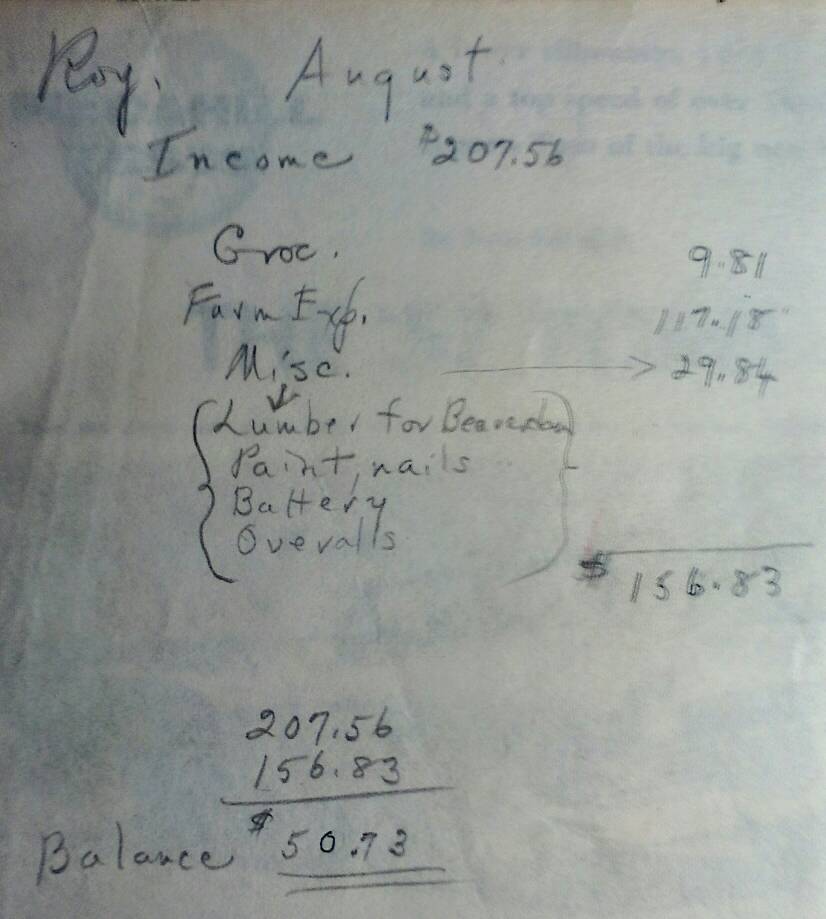 Roy. August.
Income $207.56
Groc. 9.81
Farm Exp. 117.18
Misc. → 29.84
Lumber for Beaverdam
Paint, nails
Battery
Overalls
$156.83
207.56
156.83
Balance $50.73